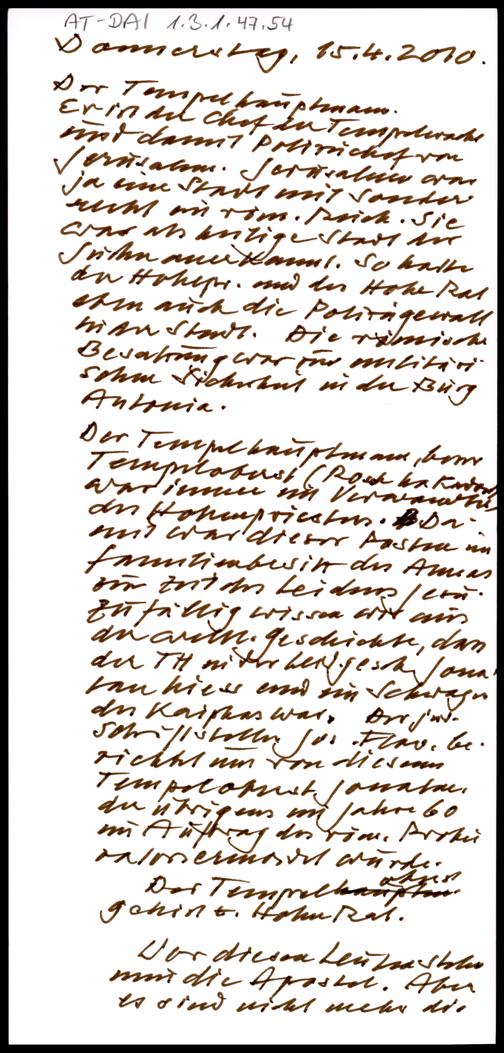 AT-DAI 1.3.1.47.54
Donnerstag, 15.4.2010.
Der Tempelhauptmann.
Er ist der Chef der Tempelwache
und damit Polizeichef von
Jerusalem. Jerusalem war
ja eine Stadt mit Sonder
recht im röm. Reich. Sie
war als heilige Stadt der
Juden anerkannt. So hatte
der Hohepr. und der Hohe Rat
eben auch die Polizeigewalt
in der Stadt. Die römische
Besatzung war zur militäri
schen Sicherheit in der Burg
Antonia.
Der Tempelhauptmann, bzw
Tempeloberst (Rosh ha
war immer ein Verwandter
des Hohenpriesters. Da-
mit war dieser Posten im
Familienbesitz des Annas
zur Zeit des Leidens Jesu.
Zufällig wissen wir aus
der weltl. Geschichte, dass
der TH in der heilgesch. Jona
tan hiess und ein Schwager
des Kaiphas war. Der jüd.
Schriftsteller Jos. Flav. be-
richtet nur von diesem
Tempeloberst Jonatan.
der übrigens im Jahre 60
im Auftrag des röm. Proku
rators ermordet wurde.
Der Tempeloberst
gehört z. Hohen Rat.
Vor diesen Leuten stehen
nun die Apostel. Aber
es sind nicht mehr die